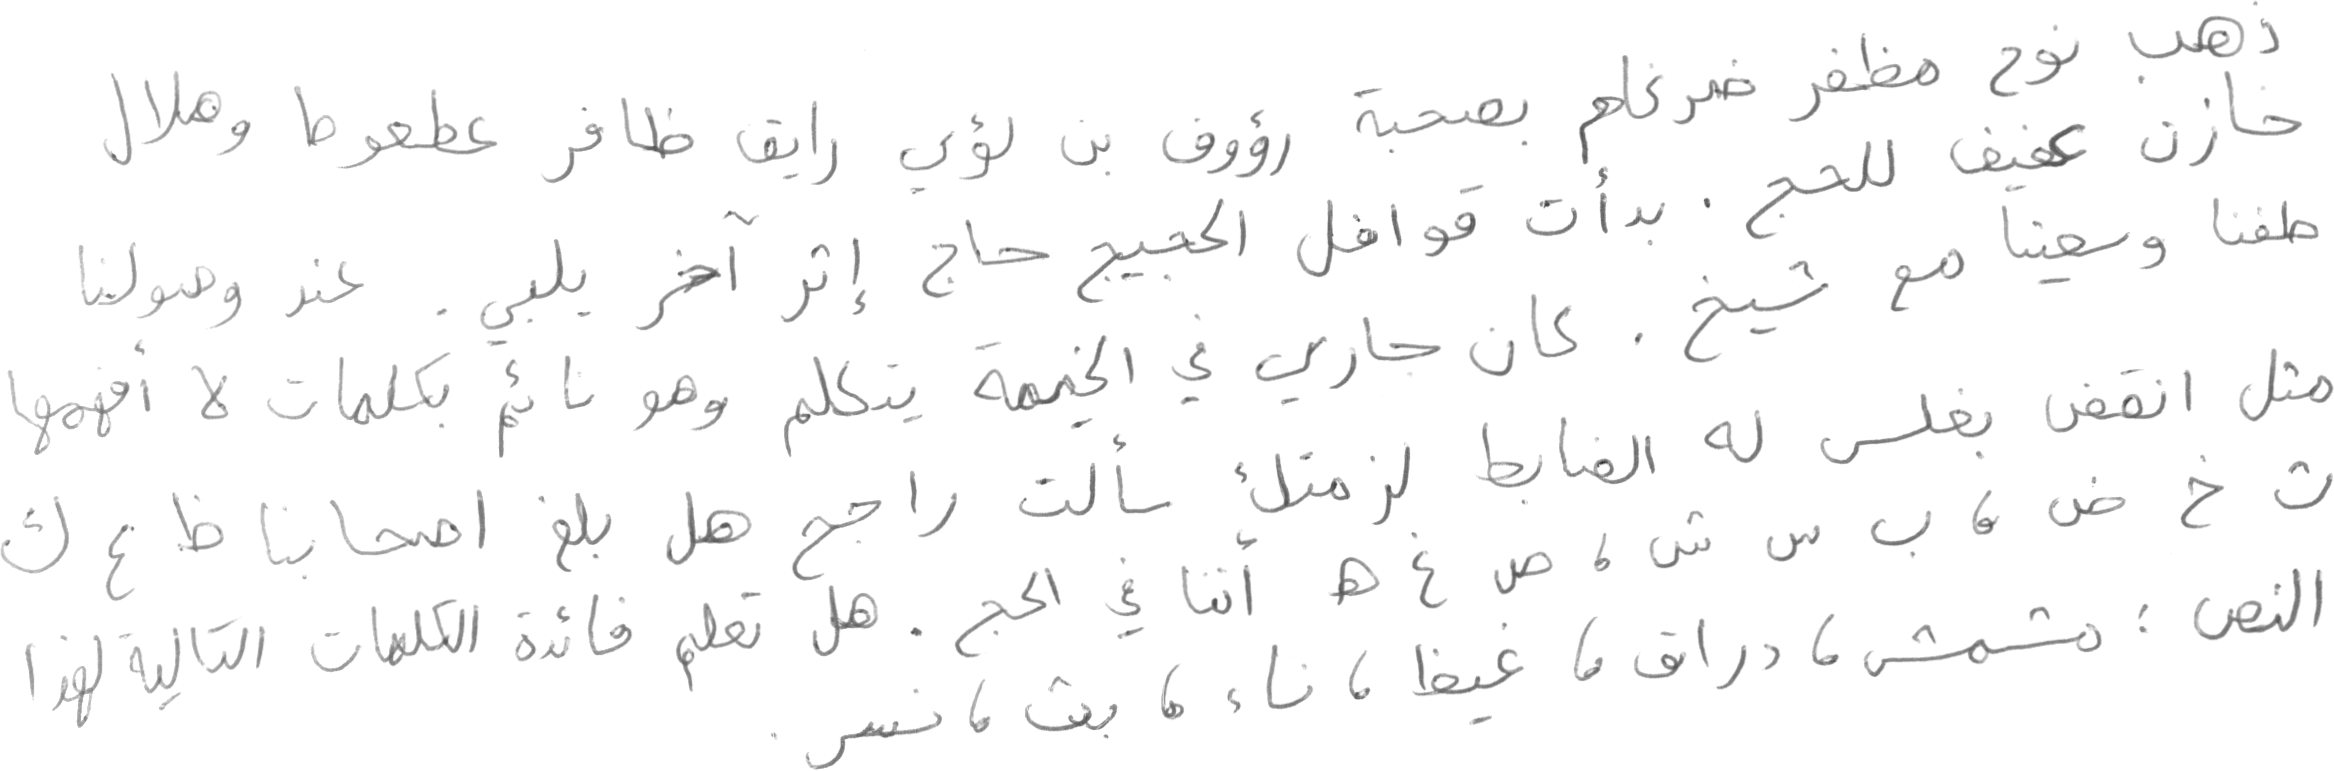 ذهب نوح مظفر ضرغام بصحبة رؤوف بن لؤي رايق ظافر عطعوط وهلال
خازن عفيف للحج . بدأت قوافل الحجيج حاج إثر آخر يلبي . عند وصولنا
طفنا وسعينا مع شيخ . كان جاري في الخيمة يتكلم وهو نائم بكلمات لا أفهمها
مثل انقض بغلس له الضابط لزمتك سألت راجح هل بلغ اصحابنا ظ ع ك
ث خ ض ، ب س ش ، ص غ ه أننا في الحج . هل تعلم فائدة الكلمات التالية لهذا
النص : مشمش ، دراق ، غيظ ، ناء ، بث ، نسر .